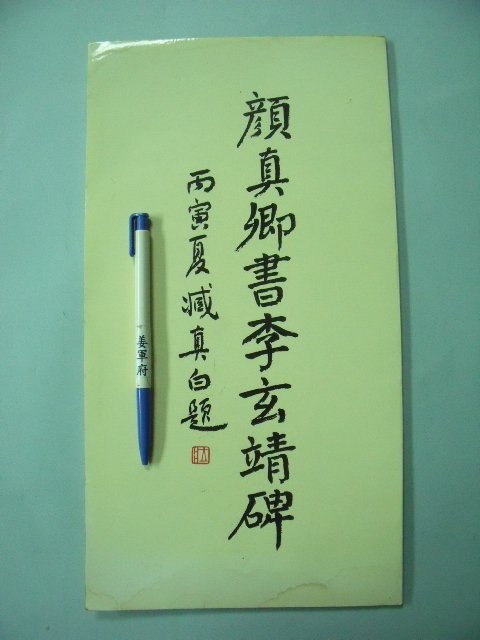 顏真卿書李玄靖碑
丙寅夏臧真白題
姜軍府